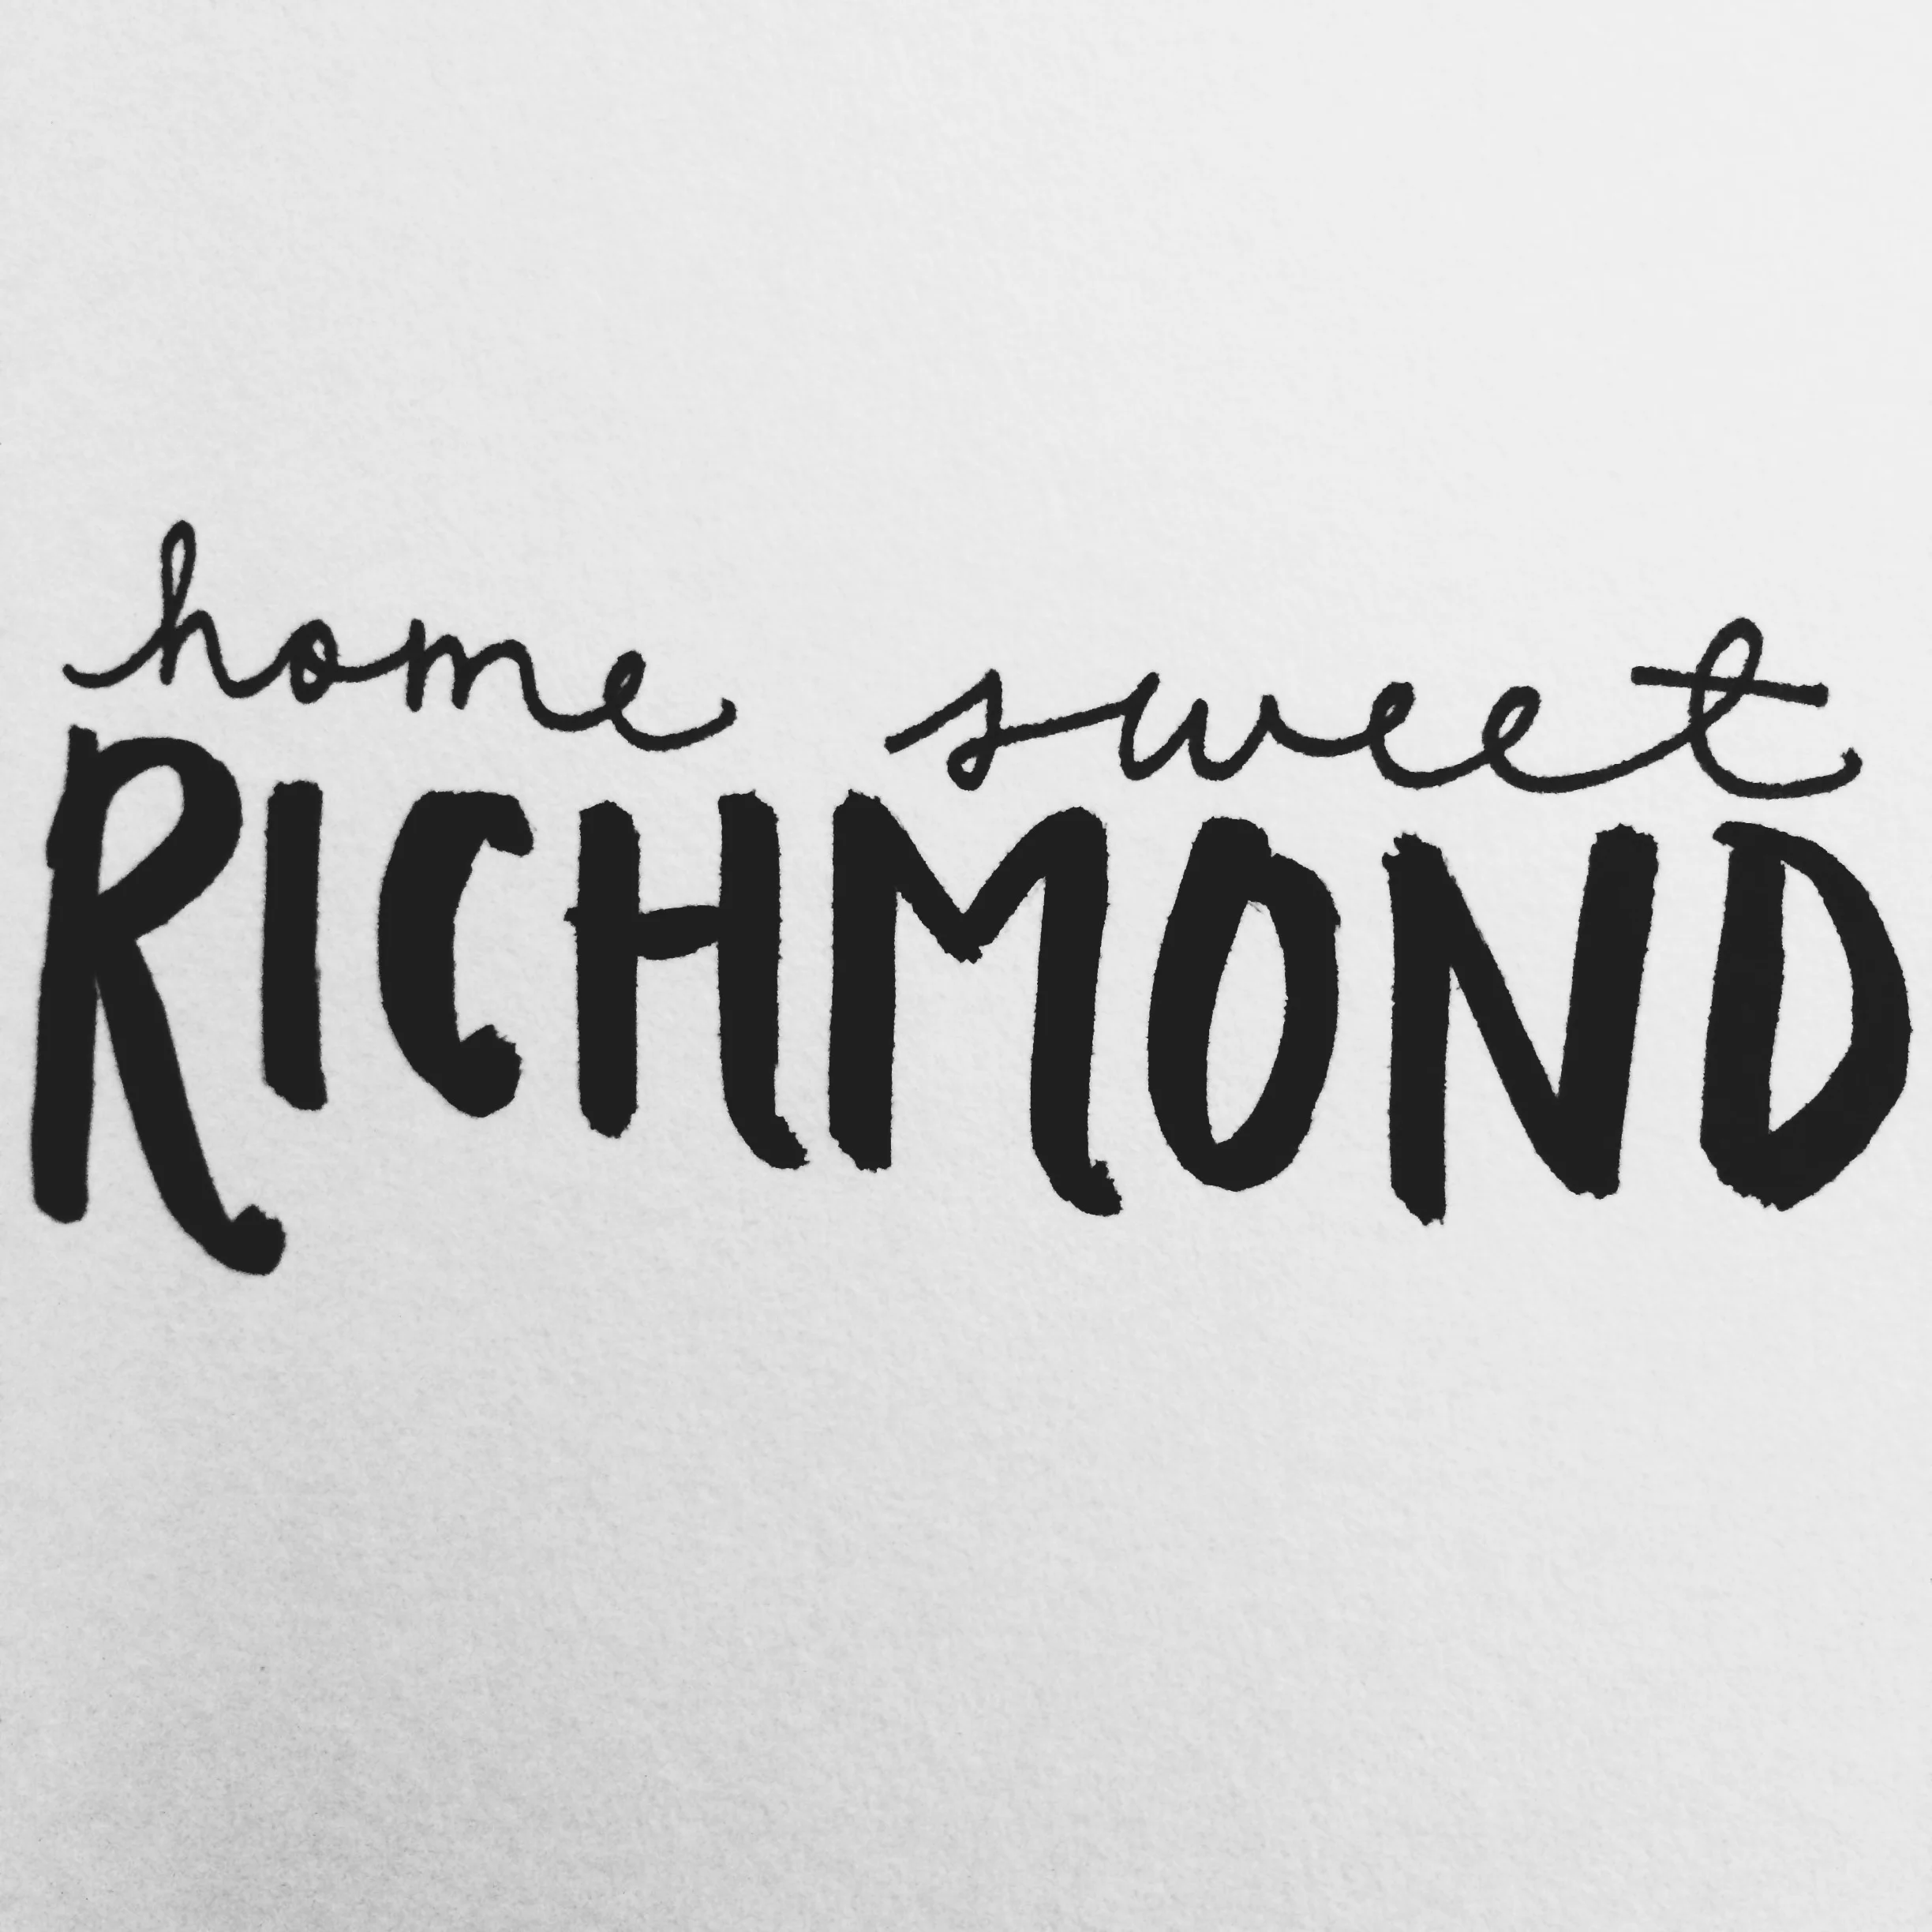 home sweet
RICHMOND